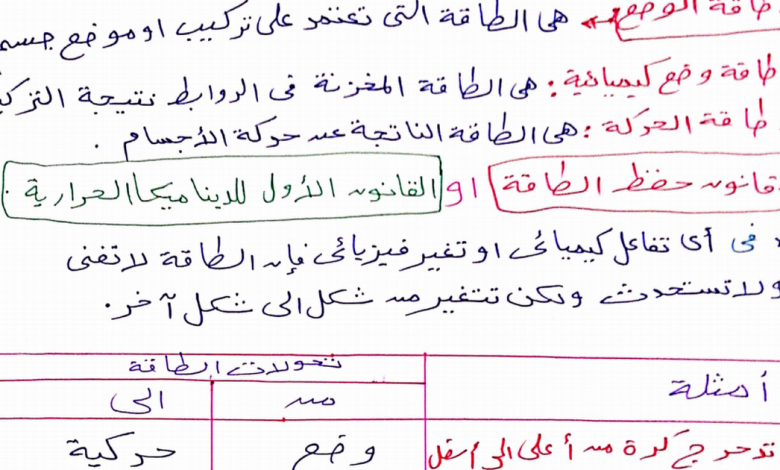 طاقة الوضع ← هى الطاقة التى تعتمد على تركيب او موضع جسم
طاقة وضع كيميائية : هى الطاقة المخزنة فى الروابط نتيجة التركي
طاقة الحركة : هى الطاقة الناتجة عن حركة الأجسام .
قانون حفظ الطاقة او القانون الأول للديناميكا الحرارية .
فى أى تفاعل كيميائى او تغير فيزيائى فإن الطاقة لا تفنى
ولا تستحدث ولكن تتغير من شكل الى شكل آخر .
أمثلة تحولات الطاقة
من الى
تدحرج كرة من أعلى الى أسفل وضع حركية